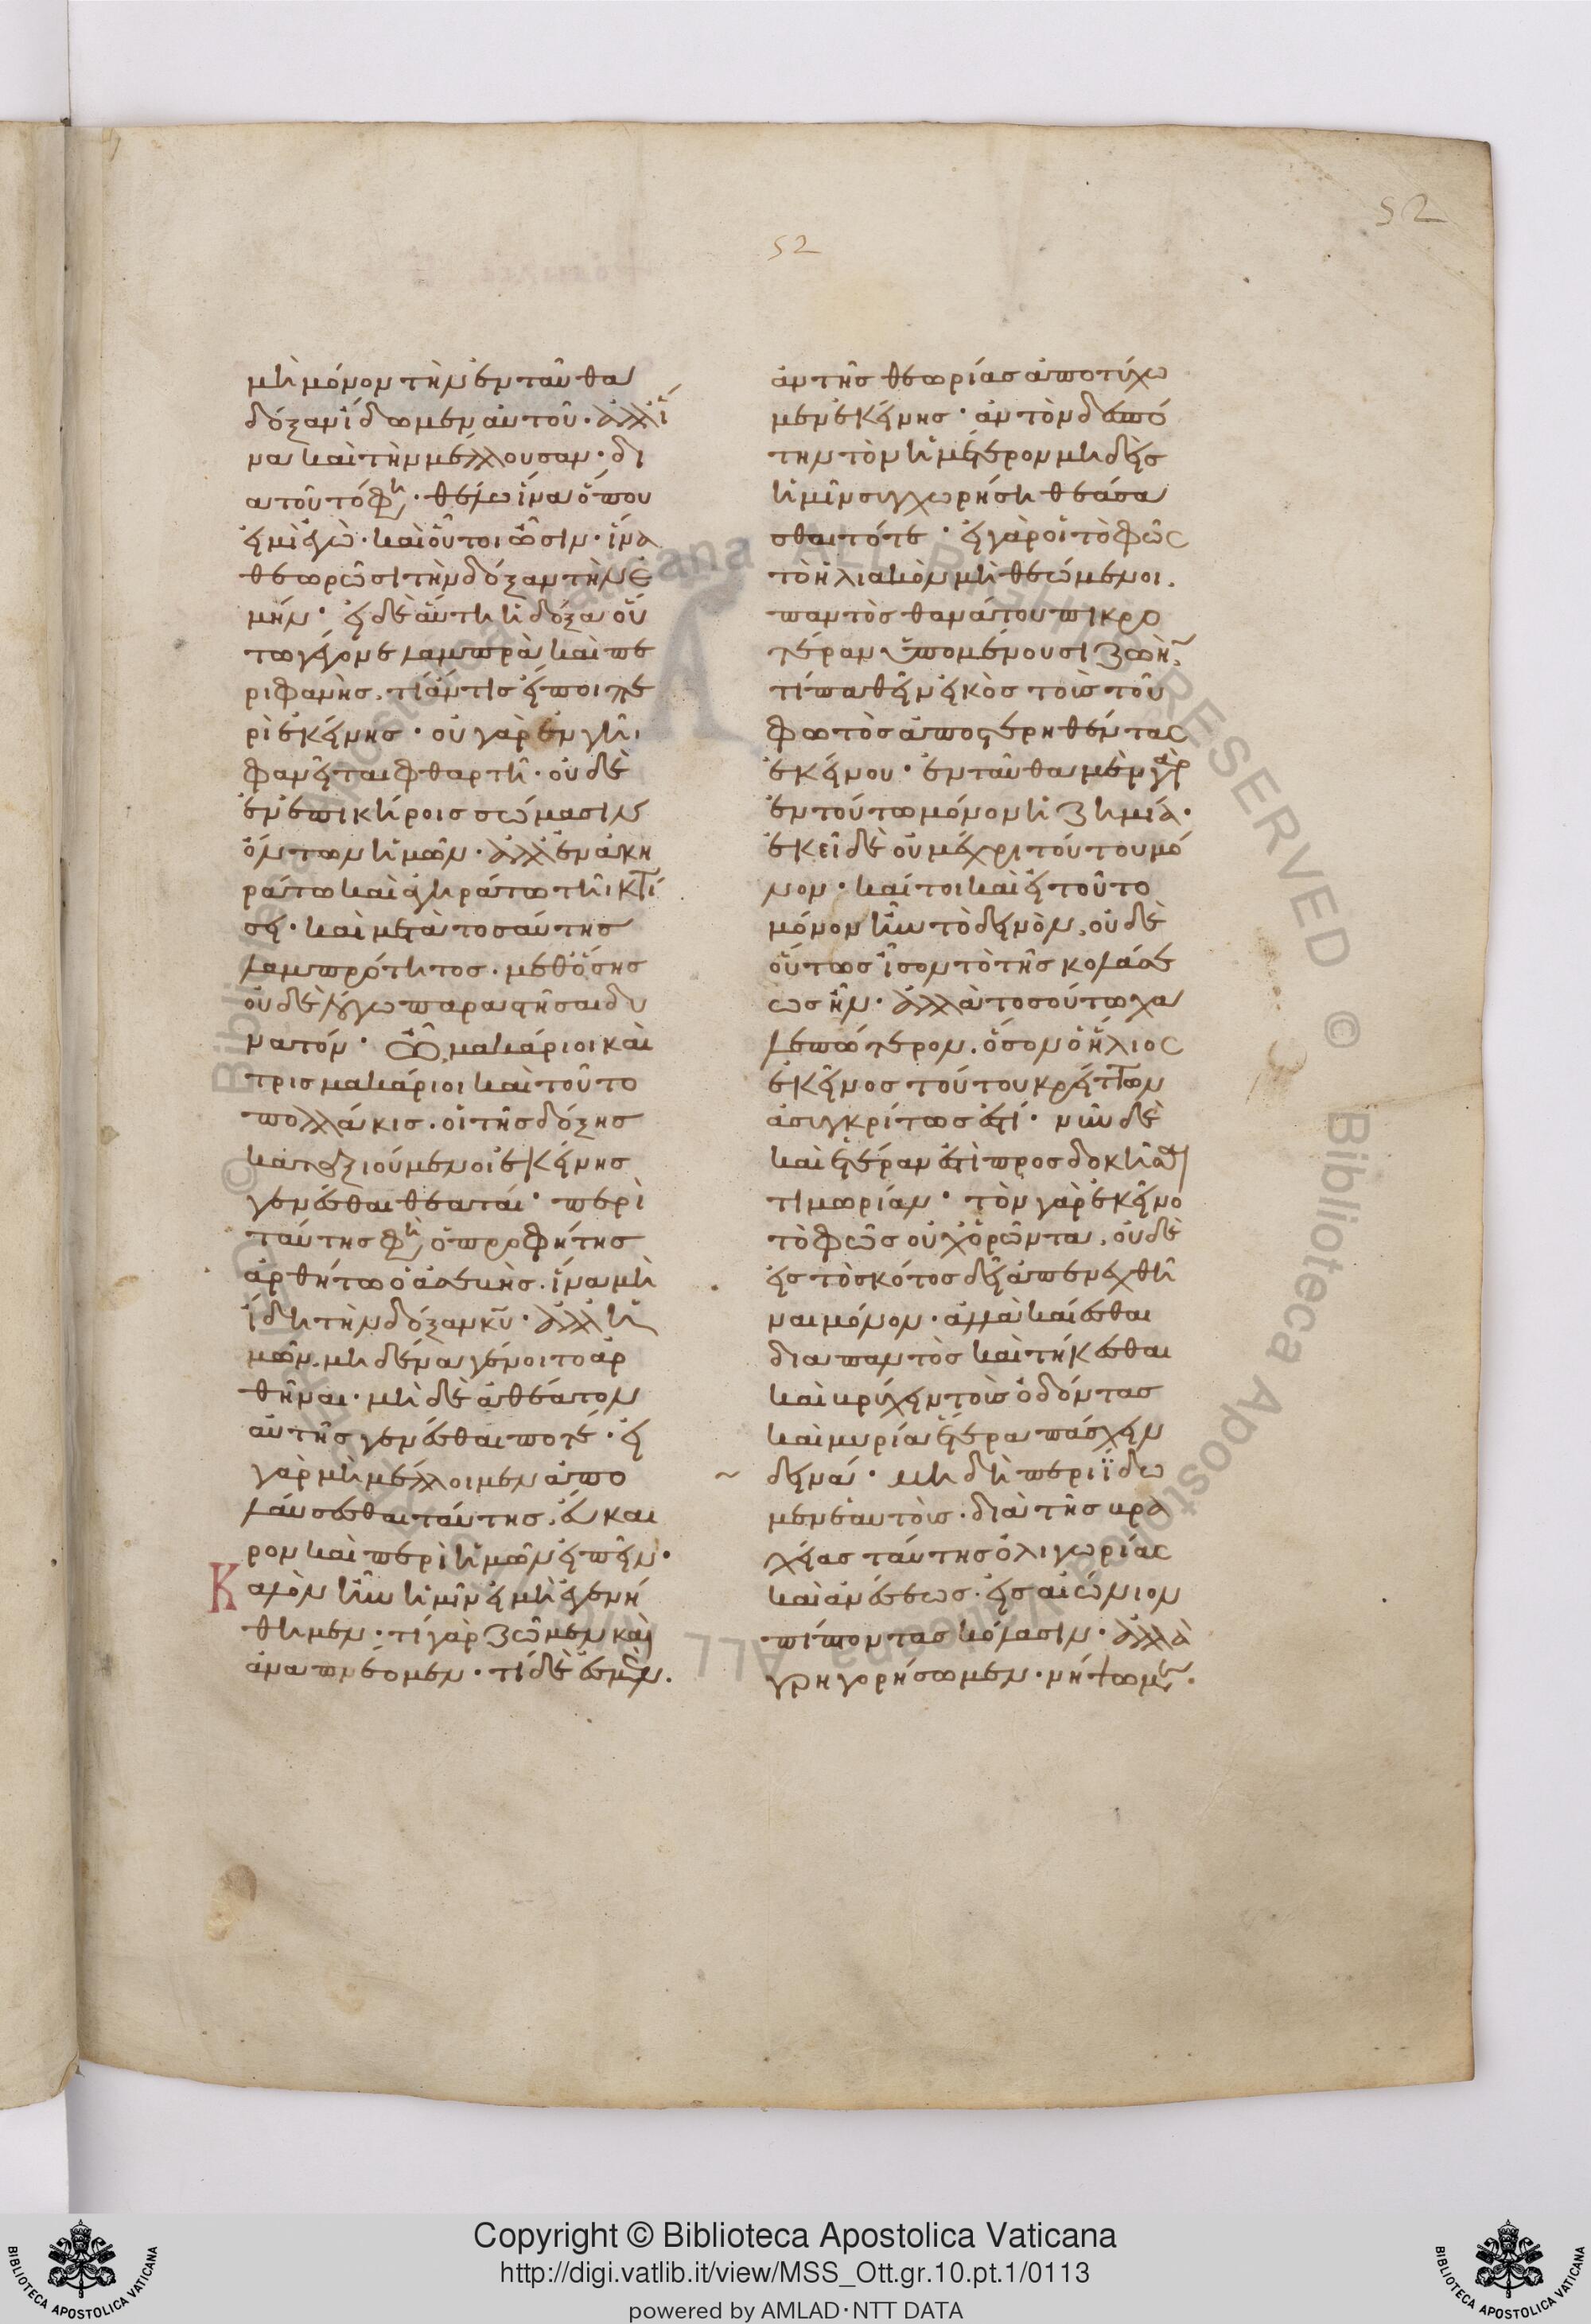 52
52
μὴ μόνον τὴν ἐνταῦθα
δόξαν ἴδωμεν αὐτοῦ· ἀλλ' ἵ
να καὶ τὴν μέλλουσαν· δι
α τοῦτό φη· θέλω ἵνα ὅπου
εἰμὶ ἐγὼ· καὶ οὗτοι ὦσιν· ἵνα
θεωρῶσι τὴν δόξαν τὴν ἐ
μήν· εἰ δὲ αὕτη ἡ δόξα οὕ
τω γέγονε λαμπρὰ καὶ πε
ριφανὴς, τί ἄν τις εἴποι πε
ρὶ ἐκείνης· οὐ γὰρ ἐν γῆι
φανεῖται φθαρτῆ· οὐδὲ
ἐν ἐπικήροις σώμασιν
ὄντων ἡμῶν· ἀλλ' ἐν ἀκη
ράτω καὶ ἀγηράτω τῆι κτί
σει· καὶ μετὰ τοσαύτης
λαμπρότητος· μεθ' ὅσης
οὐδὲ λόγω παραστῆσαι δυ
νατόν· Ὢ μακάριοι καὶ
τρισμακάριοι καὶ τοῦτο
πολλάκις· οἱ τῆς δόξης
καταξιούμενοι ἐκείνης
γενέσθαι θεαταί· περὶ
ταύτης φη ὁ προφήτης
ἀρθήτω ὁ ἀσεβὴς· ἵνα μὴ
ἴδη τὴν δόξαν κυ· ἀλλ' ἡ
μῶν μηδένα γένοιτο ἀρ
θῆναι· μὴ δὲ ἀθέατον
αὐτῆς γενέσθαι ποτέ· εἰ
γὰρ μὴ μέλλοιμεν ἀπο
λαύσεσθαι ταύτης, εὔκαι
ρον καὶ περὶ ἡμῶν εἰπεῖν·
Καλὸν ἦν ἡμῖν εἰ μὴ ἐγενή
θημεν· τί γὰρ ζῶμεν καὶ
ἀναπνέομεν· τί δέ ἐσμὲν·
ἂν τῆς θεωρίας ἀποτύχω
μεν ἐκείνης· ἂν τὸν δεσπό
την τὸν ἡμέτερον μηδεὶς
ἡμῖν συγχωρήση θεάσα
σθαι τότε· εἰ γὰρ οἱ τὸ φῶς
τὸ ἡλιακὸν μὴ θεώμενοι,
παντὸς θανάτου πικρο
τέραν ὑπομένουσι ζωὴν
τί παθεῖν εἰκὸς τοὺς τοῦ
φωτὸς ἀποστερηθέντας
ἐκείνου· ἐνταῦθα μὲν γὰρ
ἐν τούτω μόνον ἡ ζημία·
ἐκεῖ δὲ οὐ μέχρι τούτου μό
νον· καίτοι καὶ εἰ τοῦτο
μόνον ἦν τὸ δεινὸν, οὐδὲ
οὕτως ἴσον τὸ τῆς κολάσε
ως ἦν· ἀλλὰ τοσούτω χα
λεπώτερον, ὅσον ὁ ἥλιος
ἐκεῖνος τούτου κρείττων
ἀσυγκρίτως ἐστί· νῦν δὲ
καὶ ἑτέραν ἐστὶ προσδοκῆσαι
τιμωρίαν· τὸν γὰρ ἐκεῖνο
τὸ φῶς οὐχ' ὁρῶντα, οὐδὲ
εἰς τὸ σκότος δεῖ ἀπενεχθῆ
ναι μόνον· ἀλλὰ καίεσθαι
διαπαντὸς καὶ τήκεσθαι
καὶ βρύχειν τοὺς ὀδόντας
καὶ μυρία ἕτερα πάσχειν
δεινά· μὴ δὴ περιΐδω
μεν ἑαυτοὺς· διὰ τῆς βρα
χείας ταύτης ὀλιγωρίας
καὶ ἀνέσεως· εἰς αἰώνιον
πίπτοντας κόλασιν· ἀλλὰ
γρηγορήσωμεν· νήψωμεν·
Copyright © Biblioteca Apostolica Vaticana
http://digi.vatlib.it/view/MSS_Ott.gr.10.pt.1/0113
powered by AMLAD·NTT DATA
BIBLIOTECA APOSTOLICA VATICANA
BIBLIOTECA APOSTOLICA VATICANA